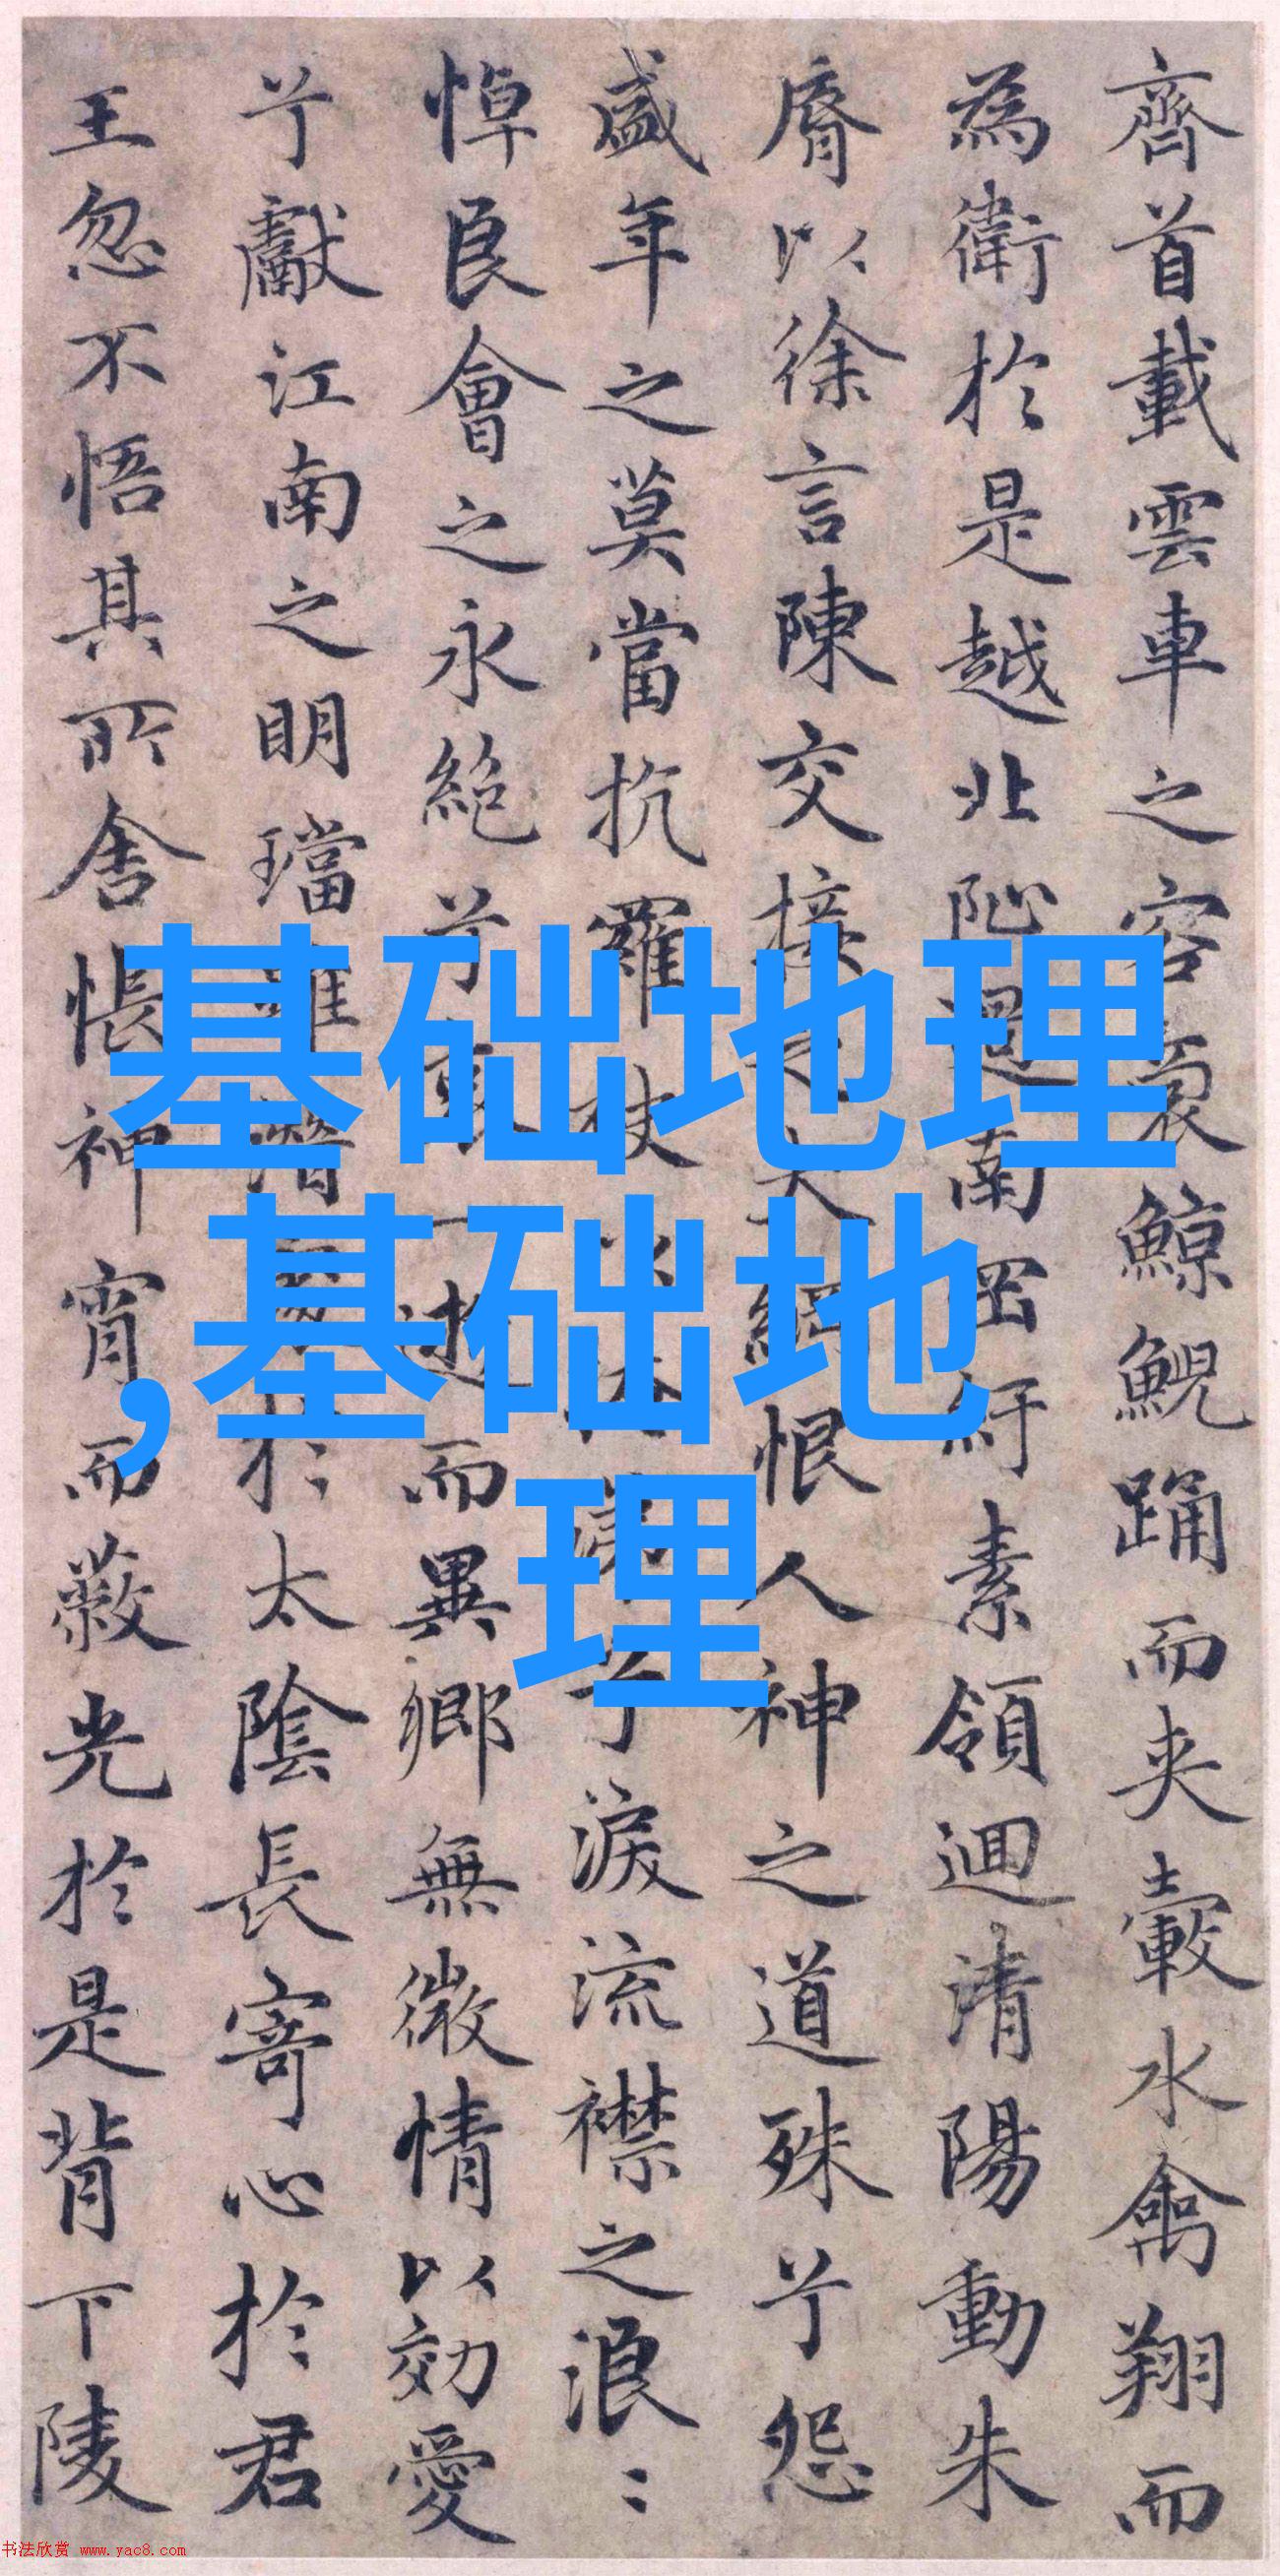 齊首載雲車之容裔鯨鯢踊而夾轂水禽翔而
為衛於是越北沚過南岡紆素領迴清陽動朱
脣以徐言陳交接之大綱恨人神之道殊兮怨
盛年之莫當抗羅袂以兮淚流襟之浪〻
悼良會之永絶兮哀一逝而異鄉無微情以効愛
兮獻江南之明璫雖潛於太陰長寄心於君
王忽不悟其所舍悵神宵而蔽光於是背下陵
基础地理
,基础地
理
书法欣赏 www.yac8.com